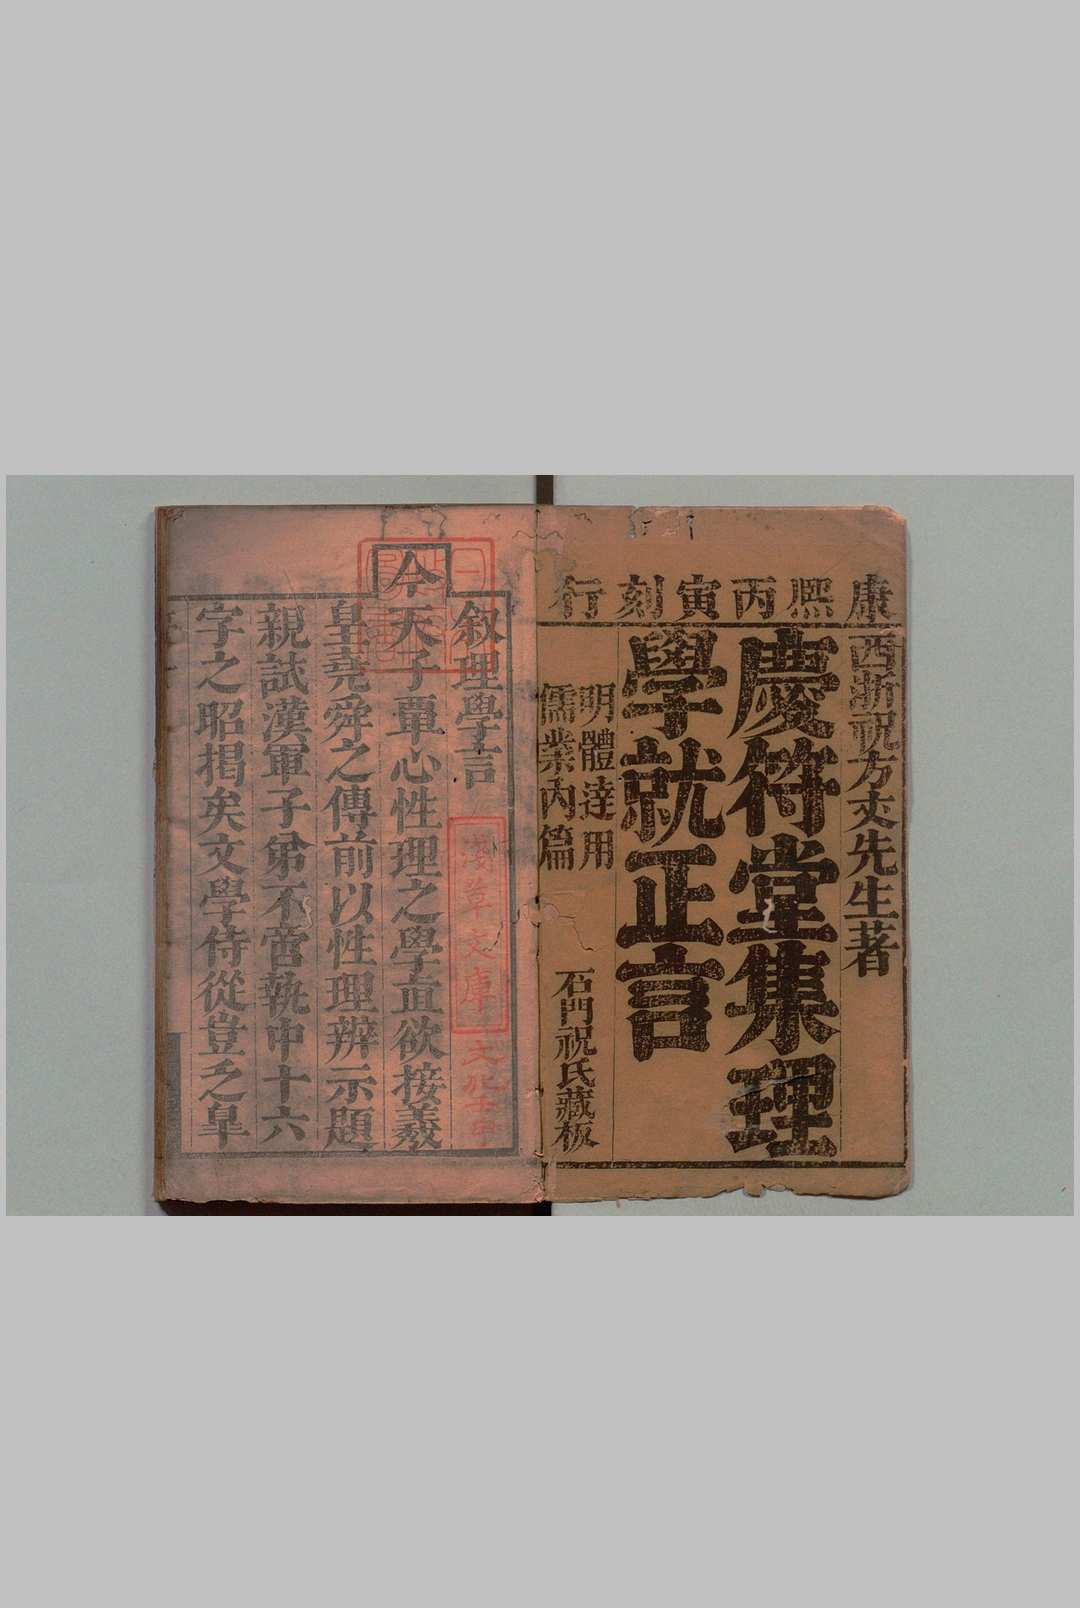 康熙丙寅刻行
西浙祝方夾先生著
慶符堂集理
學就正言
明體達用
儒業內篇
石門祝氏藏板
叙理學言
今
天子覃心性理之學直欲接羲
皇堯舜之傳前以性理辨示題
親試漢軍子弟不啻執中十六
字之昭揭矣文學侍從豈乏皐
淺草文庫